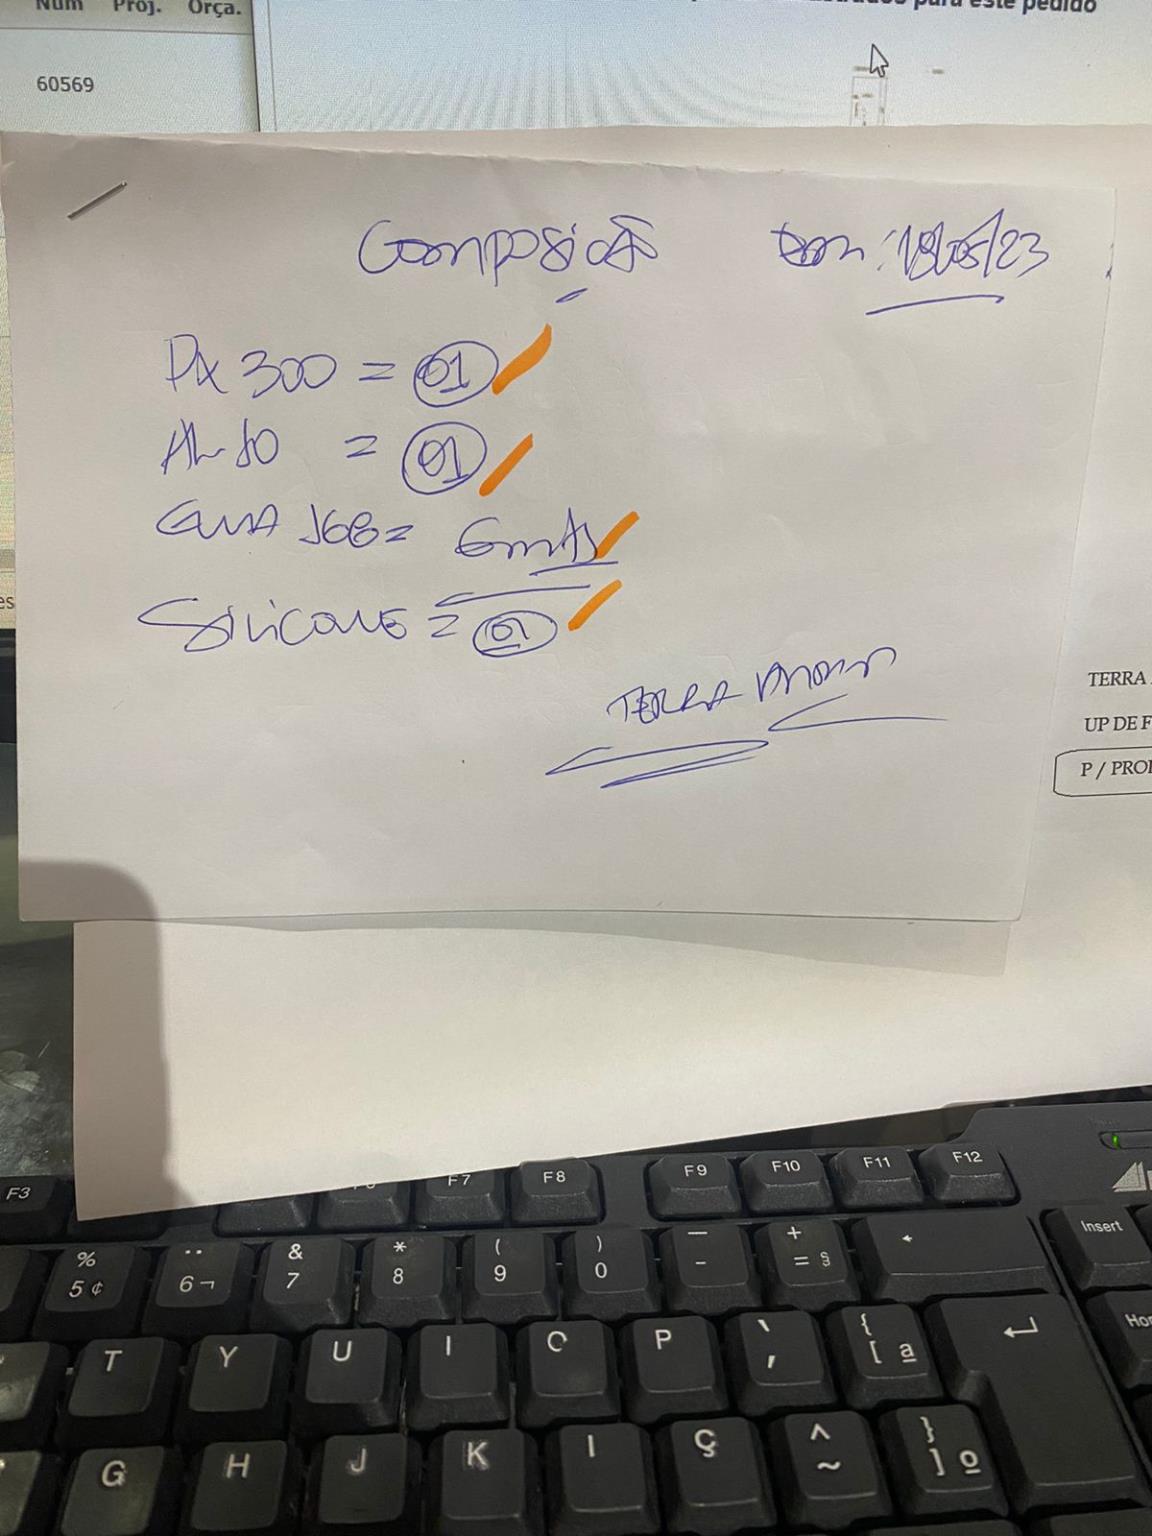 Num Proj. Orça.
para este pedido
60569
Composição 18/05/23
PX 300 = 01
AL 80 = 01
= 6mts
Silicone = 01
TERRA
TERRA
UP DE F
P / PROD
F3 F7 F8 F9 F10 F11 F12
Insert
% 5 ¢ ¨ 6 ¬ & 7 * 8 ( 9 ) 0 — - + = §
T Y U I O P ` ´ { [ ª
G H J K L Ç ^ ~ } ] º